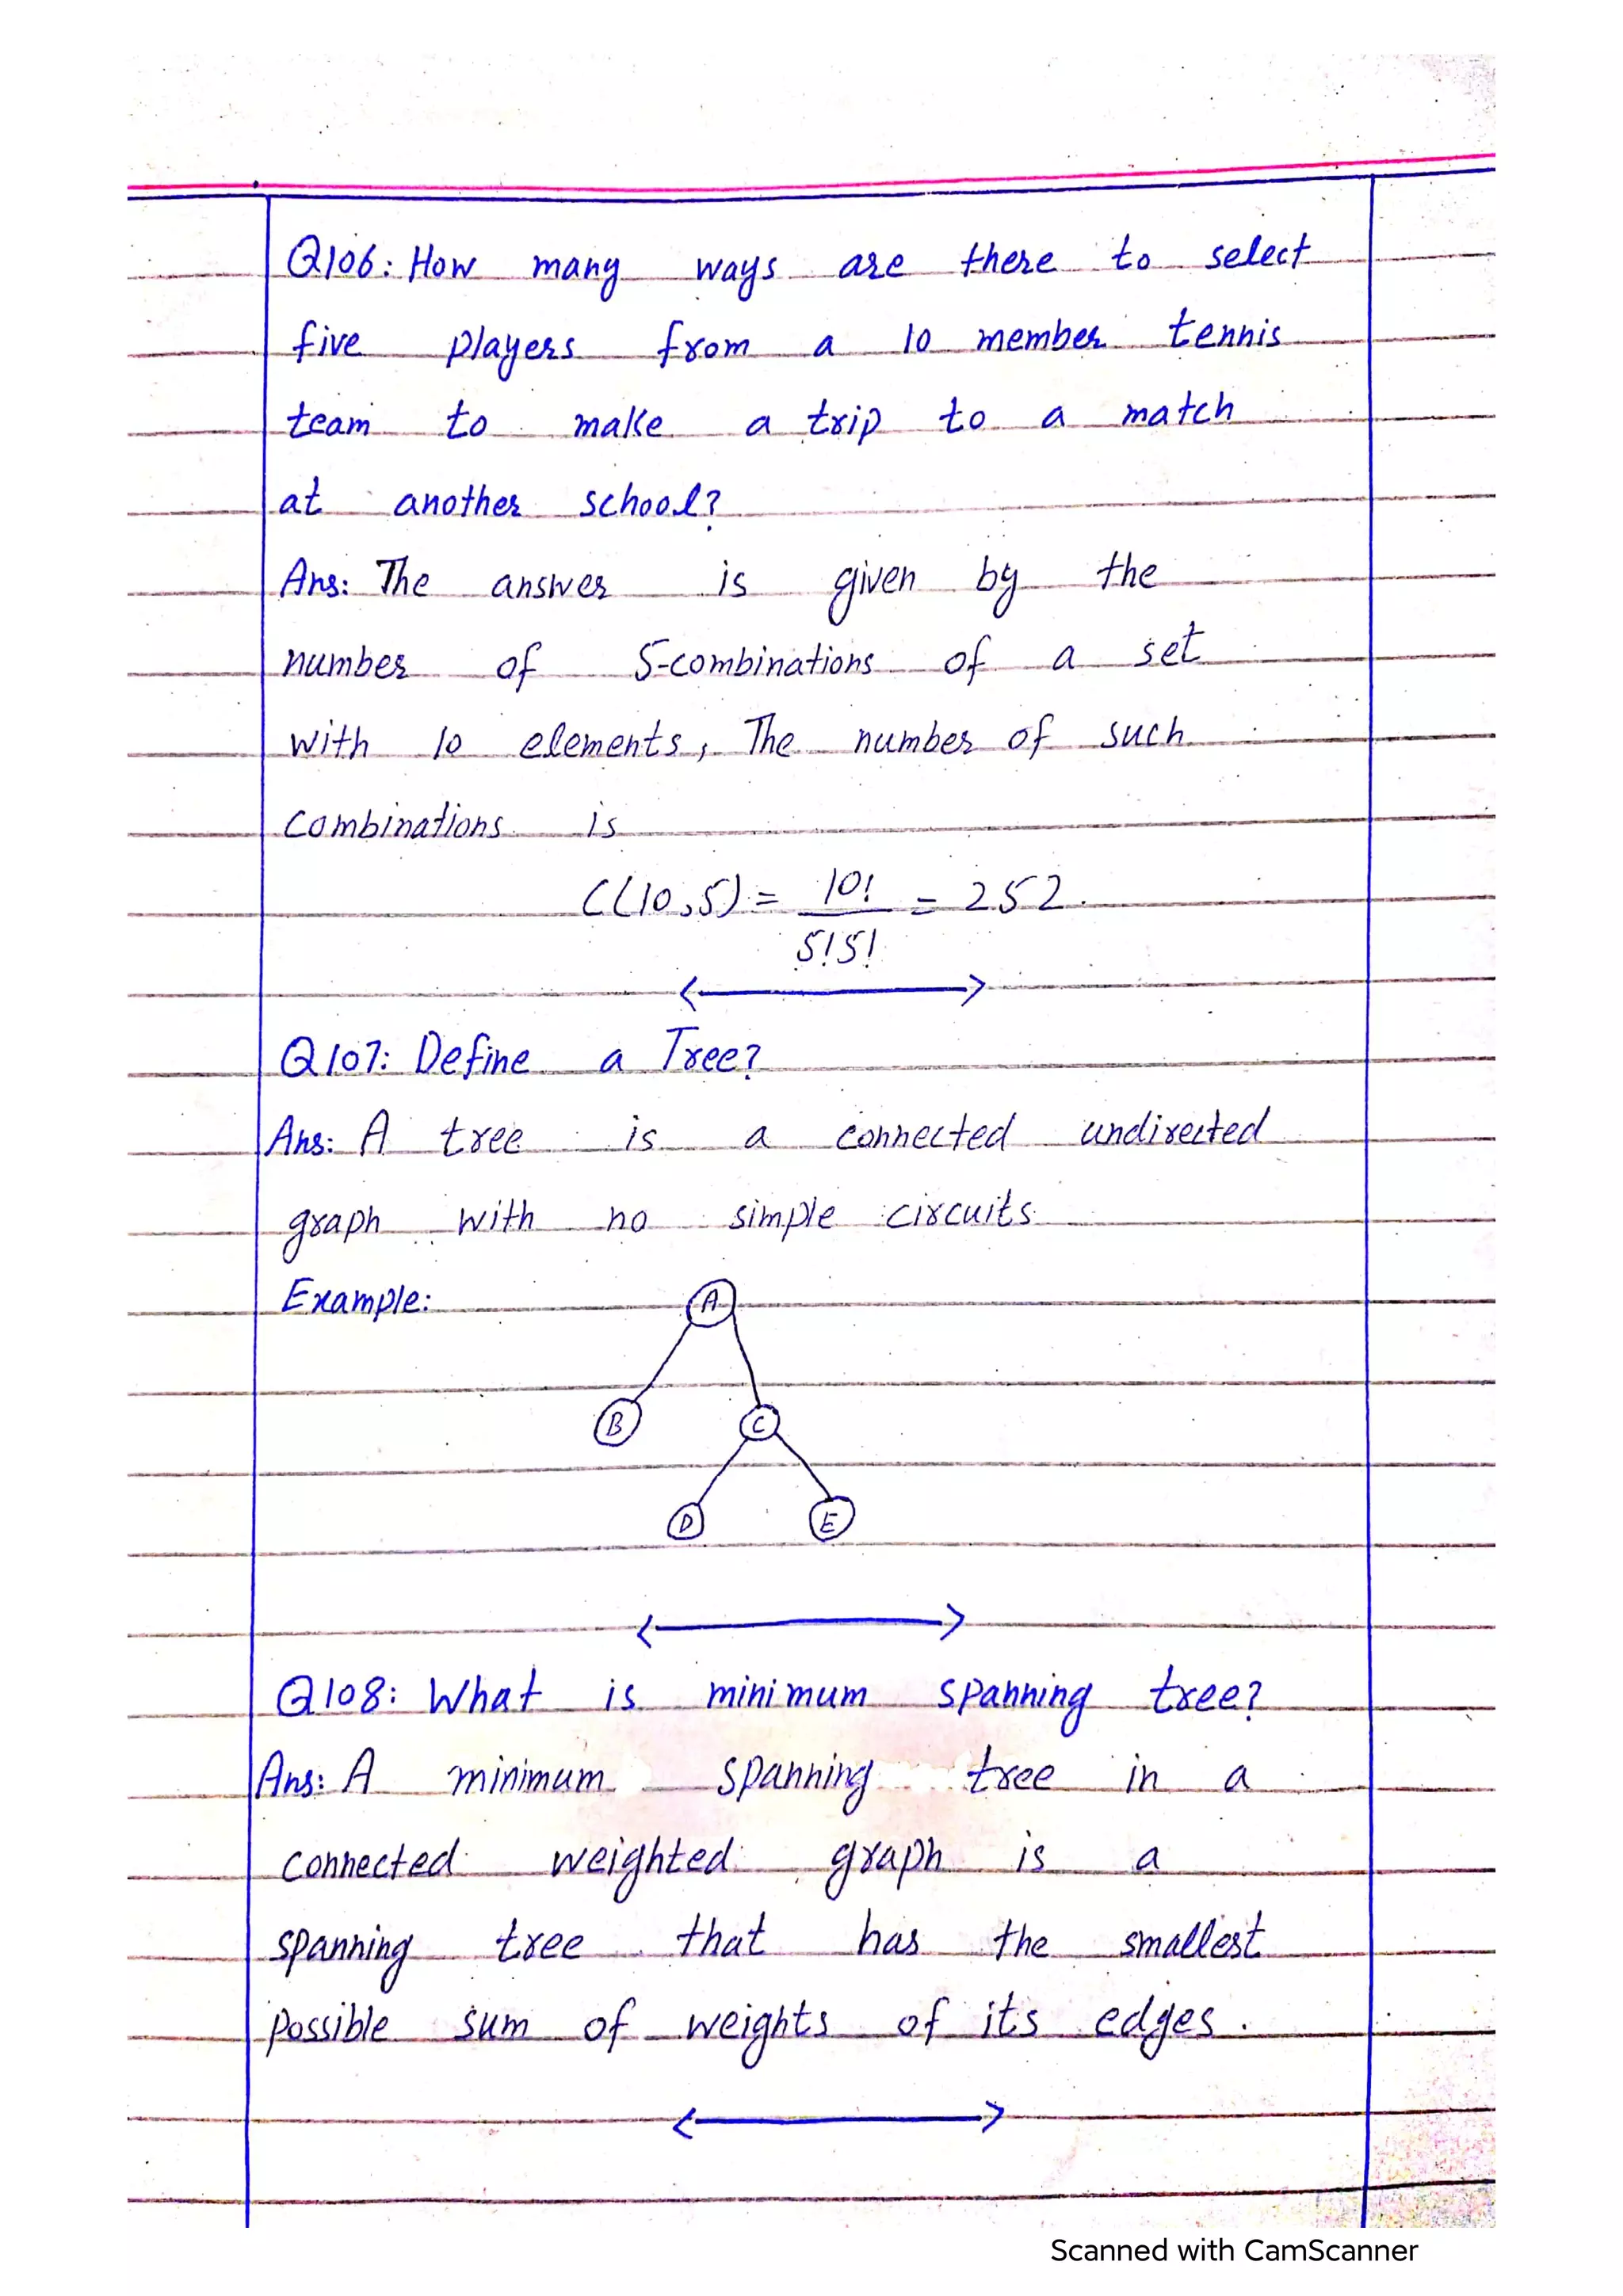 Q106: How many ways are there to select
five players from a 10 member tennis
team to make a trip to a match
at another school?
Ans: The answer is given by the
number of 5-combinations of a set
with 10 elements, The number of such
combinations is
C(10,5) = 10! / 5!5! = 252.
Q107: Define a Tree?
Ans: A tree is a connected undirected
graph with no simple circuits
Example:
A
B C
D E
Q108: What is minimum spanning tree?
Ans: A minimum spanning tree in a
connected weighted graph is a
spanning tree that has the smallest
possible sum of weights of its edges.
Scanned with CamScanner